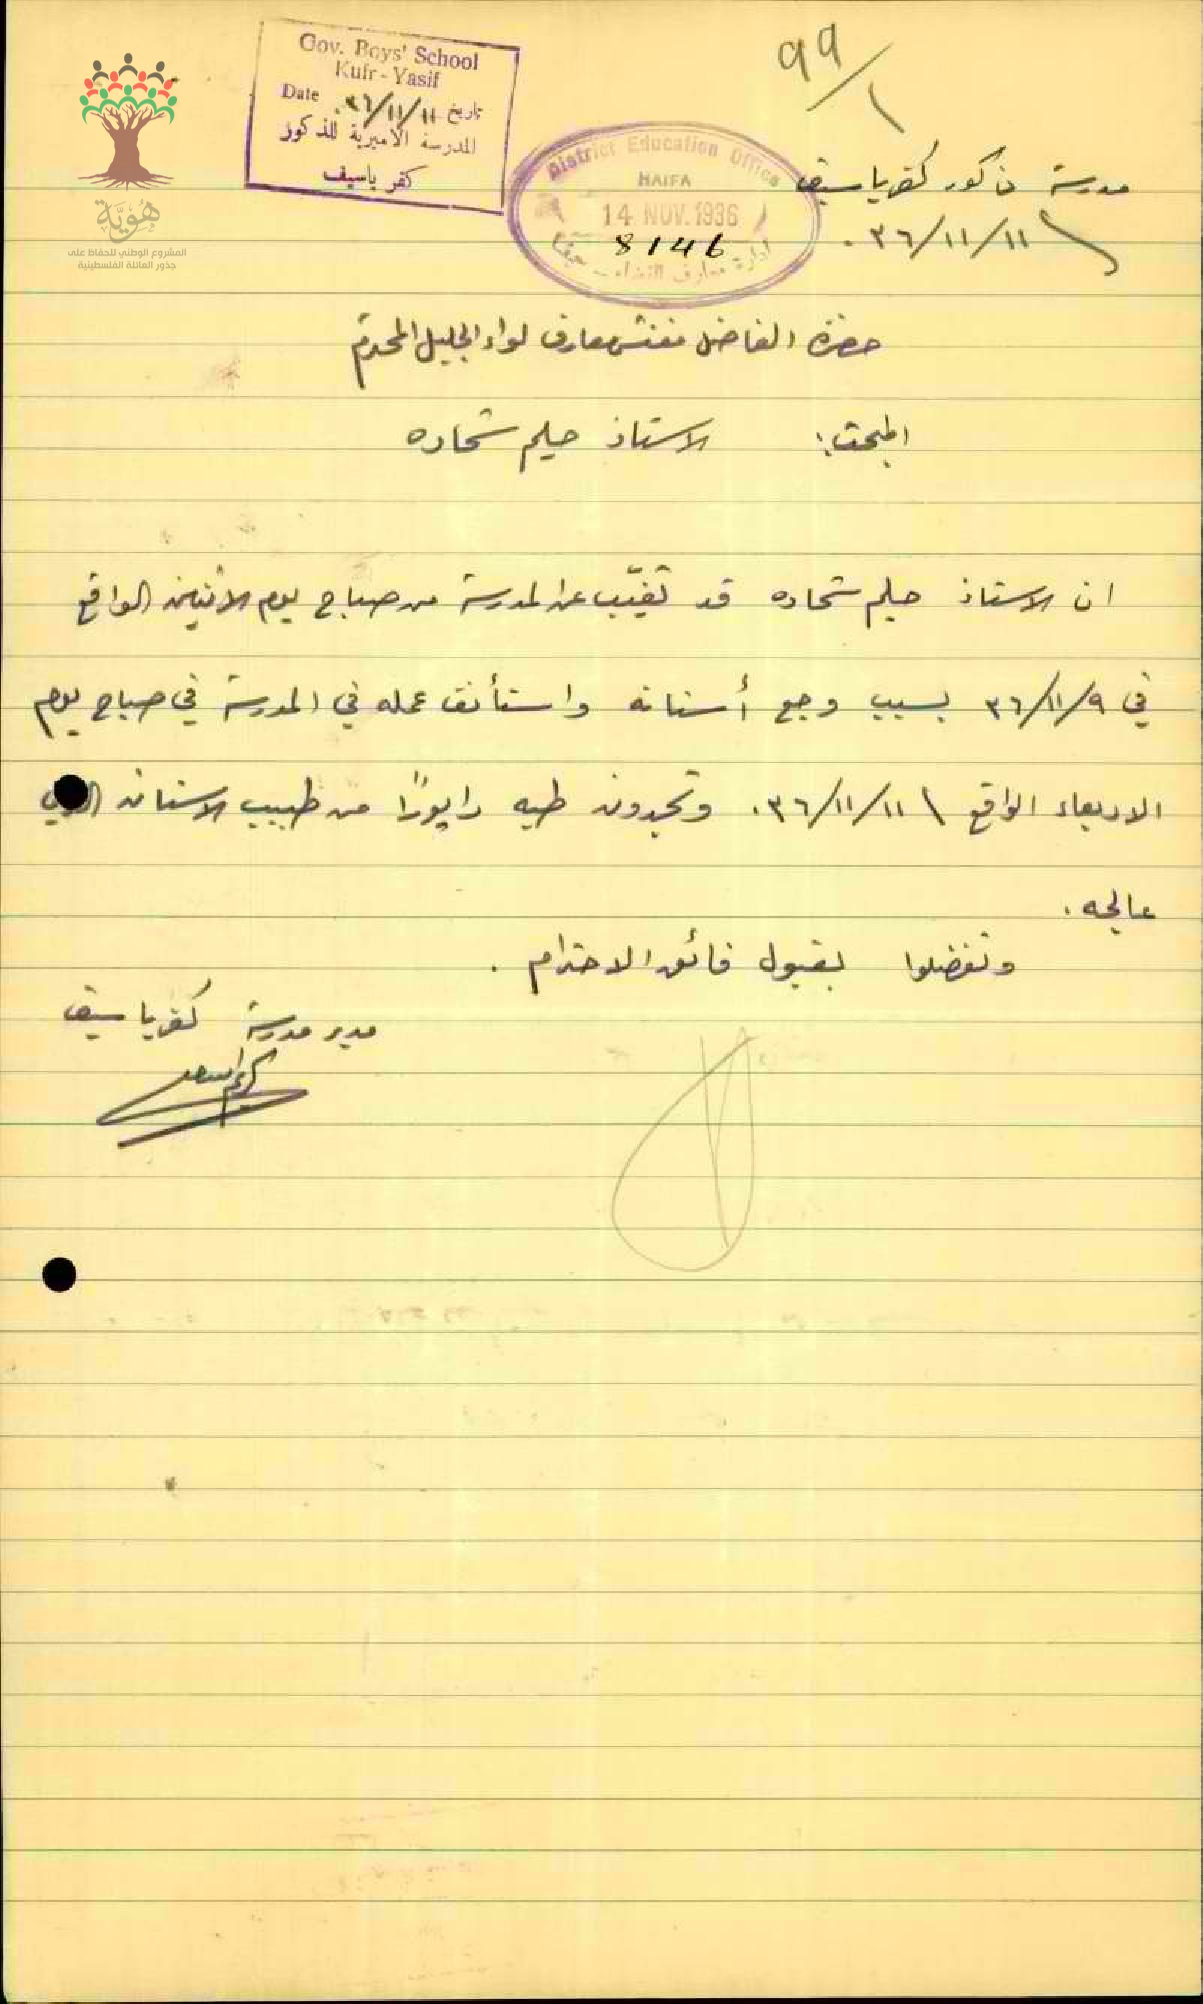 ٩٩/١
Gov. Boys' School
Kufr - Yasif
Date ٣٦/١١/١١ تاريخ
المدرسة الاميرية للذكور
كفر ياسيف
District Education Office
HAIFA
14 NOV. 1936
8146
ادارة معارف اللواء - حيفا
هُوِيَّة
المشروع الوطني للحفاظ على
جذور العائلة الفلسطينية
مدرسة ذكور كفرياسيف
٣٦/١١/١١ .
حضرة الفاضل مفتش معارف لواء الجليل المحترم
المبحث: الاستاذ حليم شحاده
ان الاستاذ حليم شحاده قد تغيّب عن المدرسة من صباح يوم الاثنين الواقع
في ٣٦/١١/٩ بسبب وجع أسنانه واستأنف عمله في المدرسة في صباح يوم
الاربعاء الواقع ٣٦/١١/١١. وتجدون طيه رابورًا من طبيب الاسنان الذي
عالجه .
وتفضلوا بقبول فائق الاحترام .
مدير مدرسة كفرياسيف